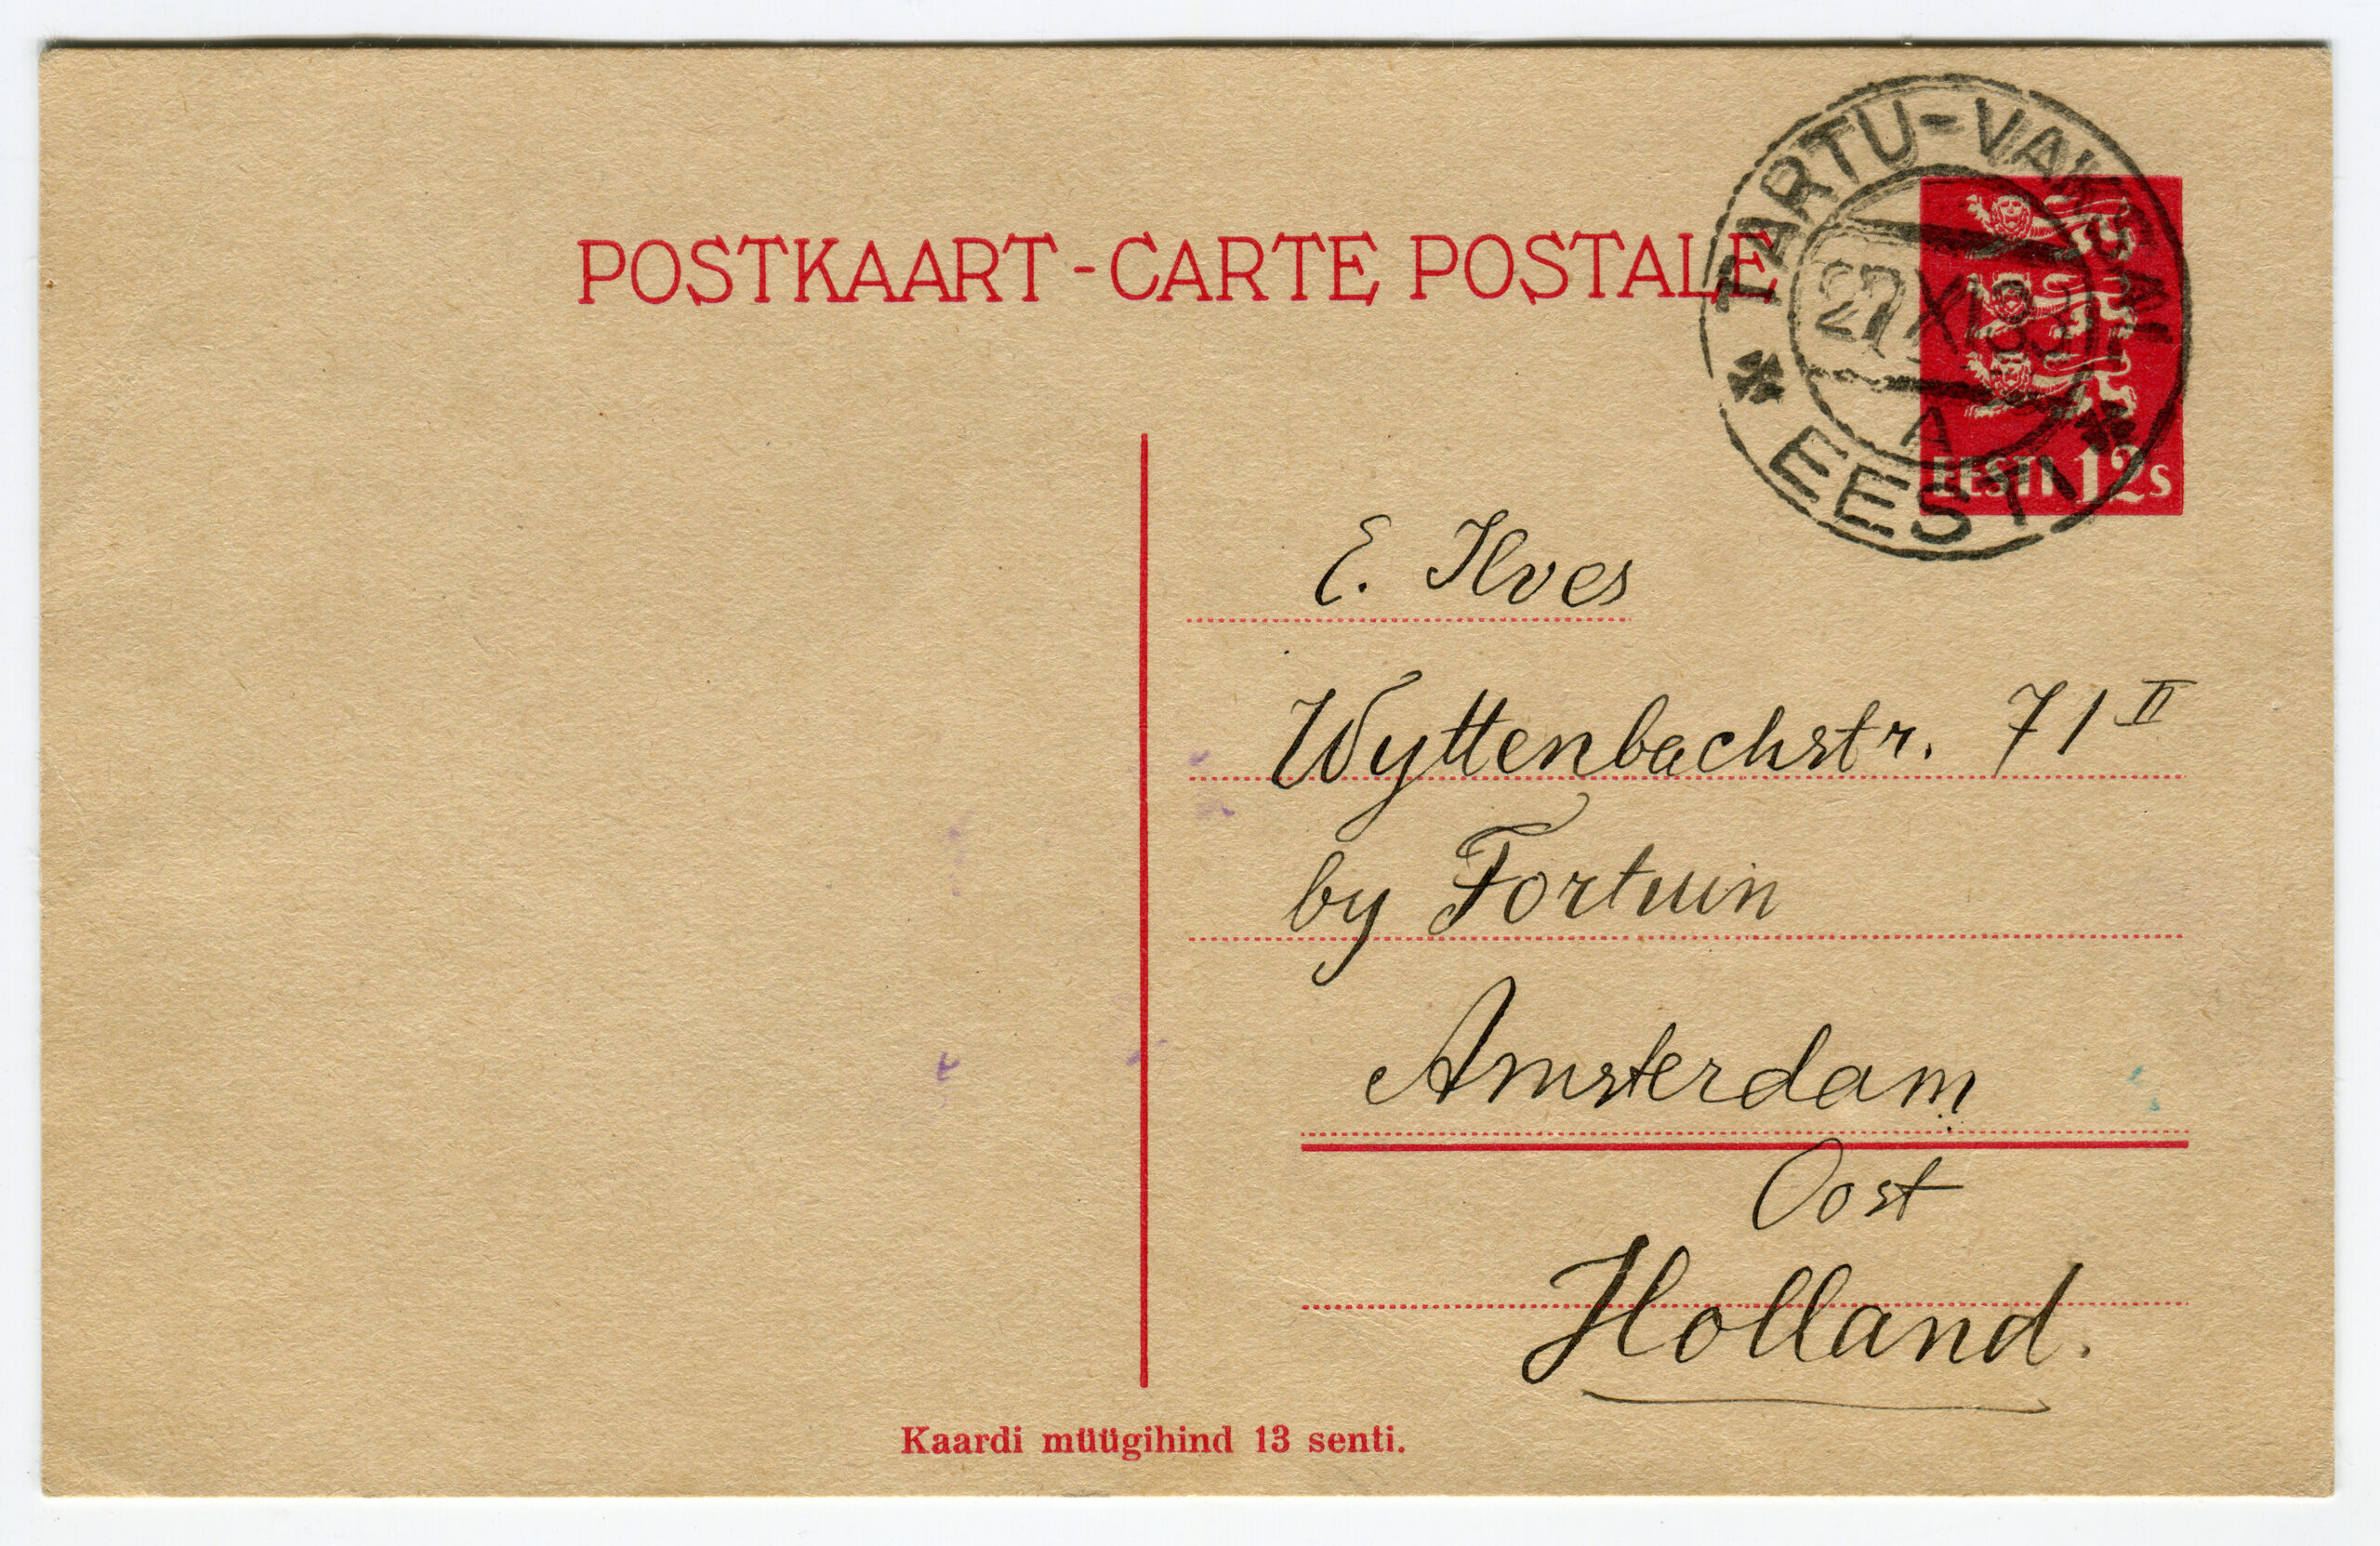 POSTKAART - CARTE POSTALE
TARTU-VAKSAL
XI
A
EESTI
EESTI 12s
E. Ilves
Wyttenbachstr. 71 II
by Fortuin
Amsterdam
Oost
Holland.
Kaardi müügihind 13 senti.